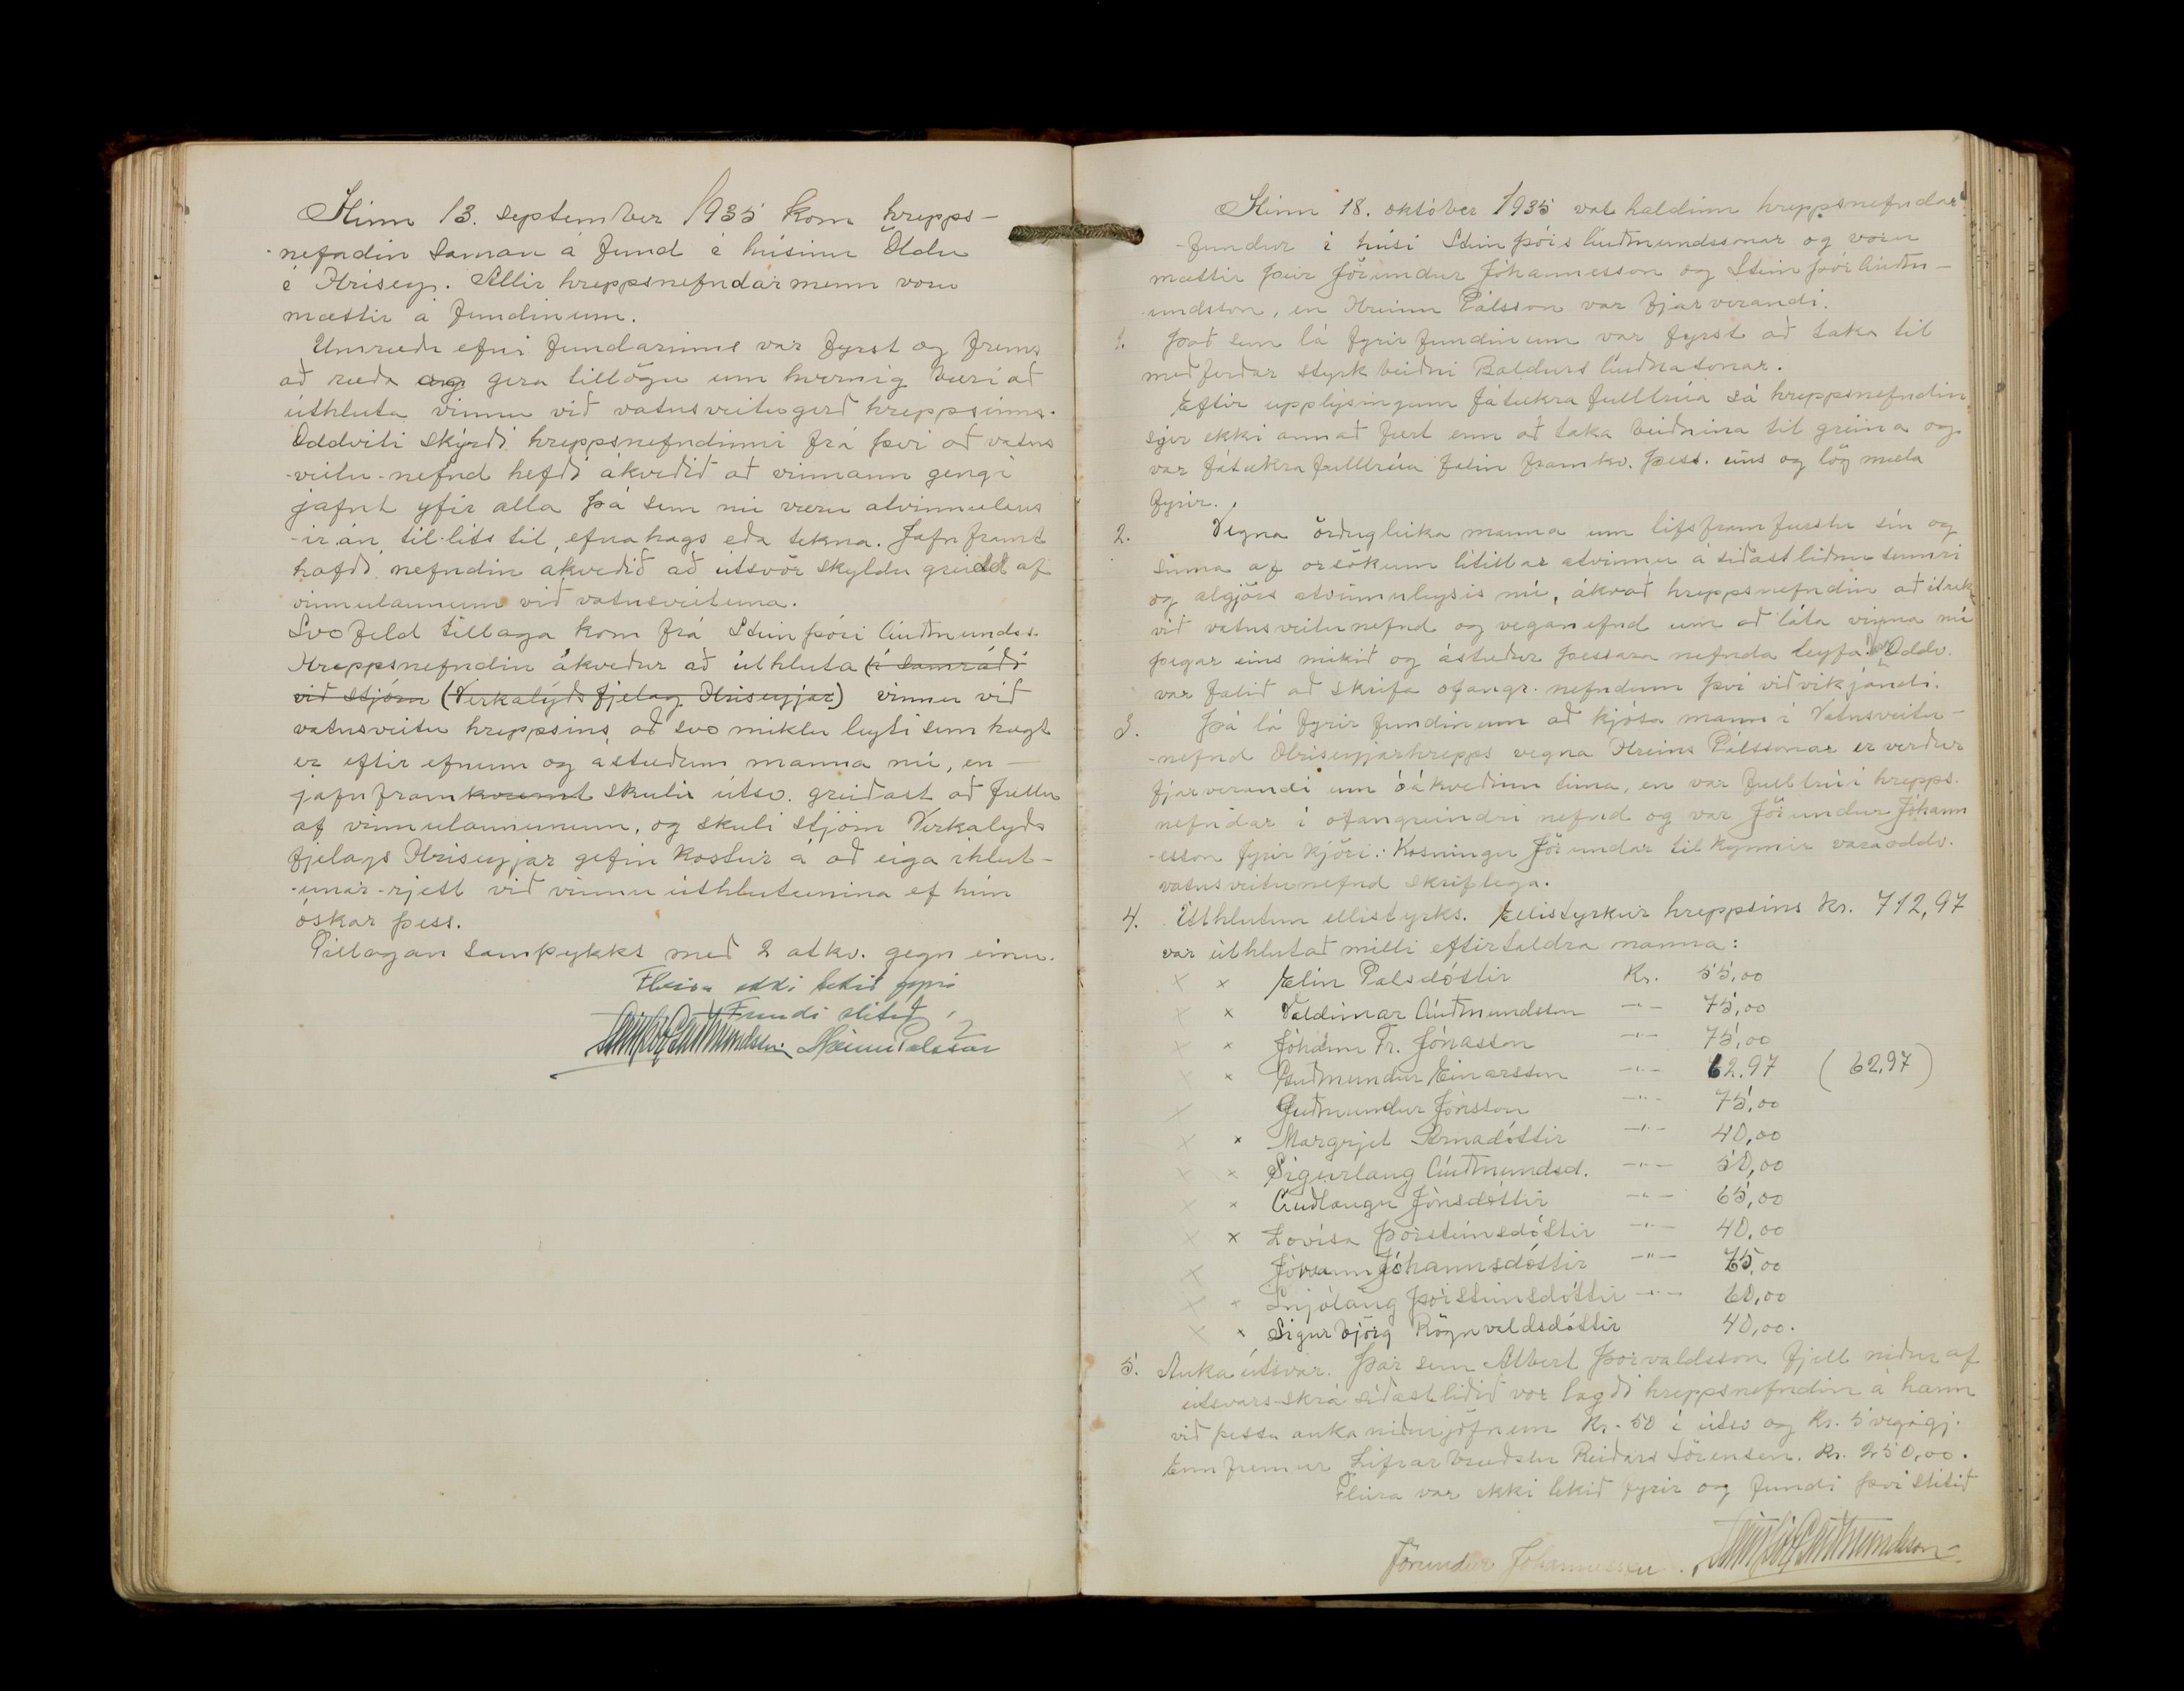 Hinn 13. september 1935 kom hrepps-
-nefndin saman á fund í húsinu Öldu
í Hrísey. Allir hreppsnefndarmenn voru
mættir á fundinum.
Umræðu efni fundarinns var fyrst og frems
að ræða og gera tillögu um hvernig bæri að
úthluta vinnu við vatnsveitugerð hreppsinns.
Oddviti skýrði hreppsnefndinni frá því að vatns
-veitu-nefnd hefði ákveðið að vinnann gengi
jafnt yfir alla þá sem nú væru atvinnulaus
-ir án til-lits til, efnahags eða tekna. Jafnframt
hafði nefndin ákveðið að útsvör skyldu greidd af
vinnulaunum við vatnsveituna.
Svo feld tillaga kom frá Steinþóri Guðmundss.
Hreppsnefndin ákveður að úthluta (í samráði
við stjórn (Verkalýðsfjelag Hríseyjar) vinnu við
vatnsveitu hreppsins, að svo miklu leyti sem hægt
er eftir efnum og ástæðum manna nú, en -
jafnframkvæmt skulu útsv. greiðast að fullu
af vinnulaununum, og skuli stjórn Verkalýðs
fjelags Hríseyjar gefin kostur á að eiga íhlut-
-unar-rjett við vinnu úthlutunina ef hún
óskar þess.
Tillagan samþykkt með 2 atkv. gegn einu.
Fleira ekki tekið fyrir
Fundi slitið
Steinþór Guðmundsson Hreinn Pálsson
Hinn 18. október 1935 var haldinn hreppsnefndar
-fundur í húsi Steinþórs Guðmundssonar og voru
mættir þeir Jörundur Jóhannesson og Steinþór Guðm-
undsson, en Hreinn Pálsson var fjarverandi.
1. Það sem lá fyrir fundinum var fyrst að taka til
meðferðar styrk beiðni Baldurs Guðnasonar.
Eftir upplýsingum fátækra fulltrúa sá hreppsnefndin
sjer ekki annað fært enn að taka beiðnina til greina og
var fátækrafulltrúa falin framkv. þess. eins og lög mæla
fyrir.
2. Vegna örðugleika manna um lífsframfærslu sín og
sinna af orsökum lítillar atvinnu á síðastliðnu sumri
og algjörs atvinnuleysis nú, ákvað hreppsnefndin að ítreka
við vatnsveitunefnd og veganefnd um að láta vinna nú
þegar eins mikið og ástæður þessara nefnda leyfa. Oddv.
var falið að skrifa ofangr. nefndum því viðvíkjandi.
3. Þá lá fyrir fundinum að kjósa mann í Vatnsveitu-
-nefnd Hríseyjarhrepps vegna Hreins Pálssonar er verður
fjarverandi um óákveðinn tíma, en var fulltrúi hrepps.
nefndar í ofangreindri nefnd og var Jörundur Jóhann
-esson fyrir kjöri. Kosningu Jörundar tilkynnir varaoddv.
vatnsveitunefnd skriflega.
4. Úthlutun ellistyrks. Ellistyrkur hreppsins kr. 712,97
var úthlutað milli eftirtaldra manna:
× × Elín Pálsdóttir Kr. 55,00
× × Valdimar Guðmundsson -"- 75,00
× × Jóhann Fr. Jónasson -"- 75,00
× × Guðmundur Einarsson -"- 62.97 (62,97)
× Guðmundur Jónsson -"- 75,00
× × Margrjet Árnadóttir -"- 40,00
× × Sigurlaug Guðmundsd. -"- 50,00
× × Guðlaugu Jónsdóttir -"- 65,00
× × Lovísa Þorsteinsdóttir -"- 40,00
× Jóhannsdóttir -"- 75,00
× × Snjólaug Þorsteinsdóttir -"- 60,00
× × Sigurbjörg Rögnvaldsdóttir 40,00.
5. Auka útsvar. Þar sem Albert Þorvaldsson fjell niður af
útsvars-skrá síðastliðið vor lagði hreppsnefndin á hann
við þessu aukaniðurjöfnum Kr. 50 í útsv og kr. 5 vegagj.
Ennfremur Lifrarbræðslu Reidars Sörensen. Kr. 250,00.
Fleira var ekki tekið fyrir og fundi því slitið
Jörundur Jóhannesson. Steinþór Guðmundsson